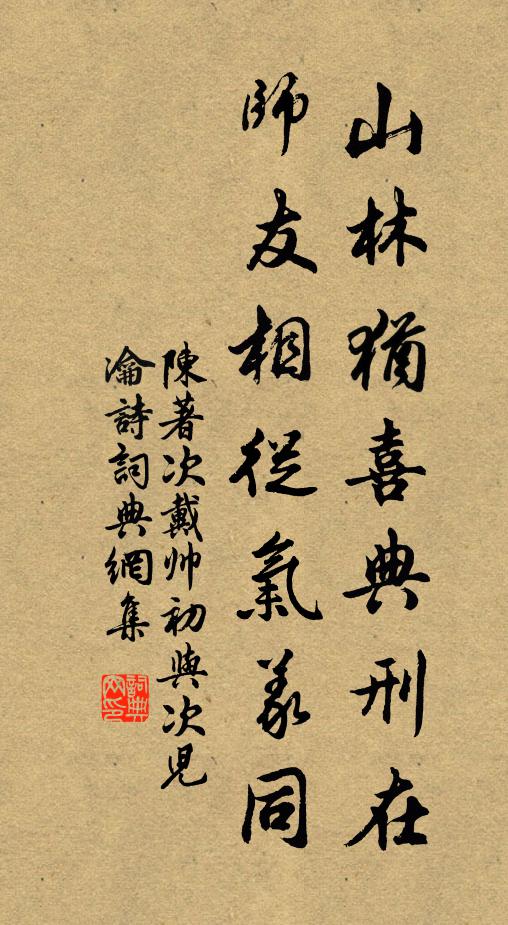 山林猶喜典刑在
師友相從氣義同
陳著次戴帅初與次兒
瀹詩詞典網集
詞典